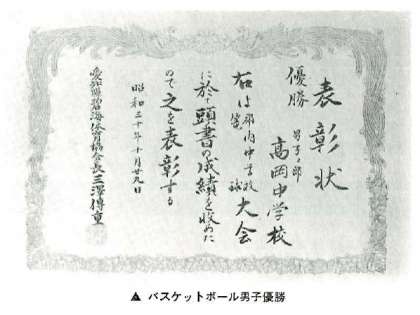 表彰状
優勝 男子の部
高岡中学校
右は郡内中学校
篭球大会
に於て頭書の成績を収めた
ので之を表彰する
昭和三十年十月廿九日
愛知県碧海体育協会長三澤傳重
▲ バスケットボール男子優勝